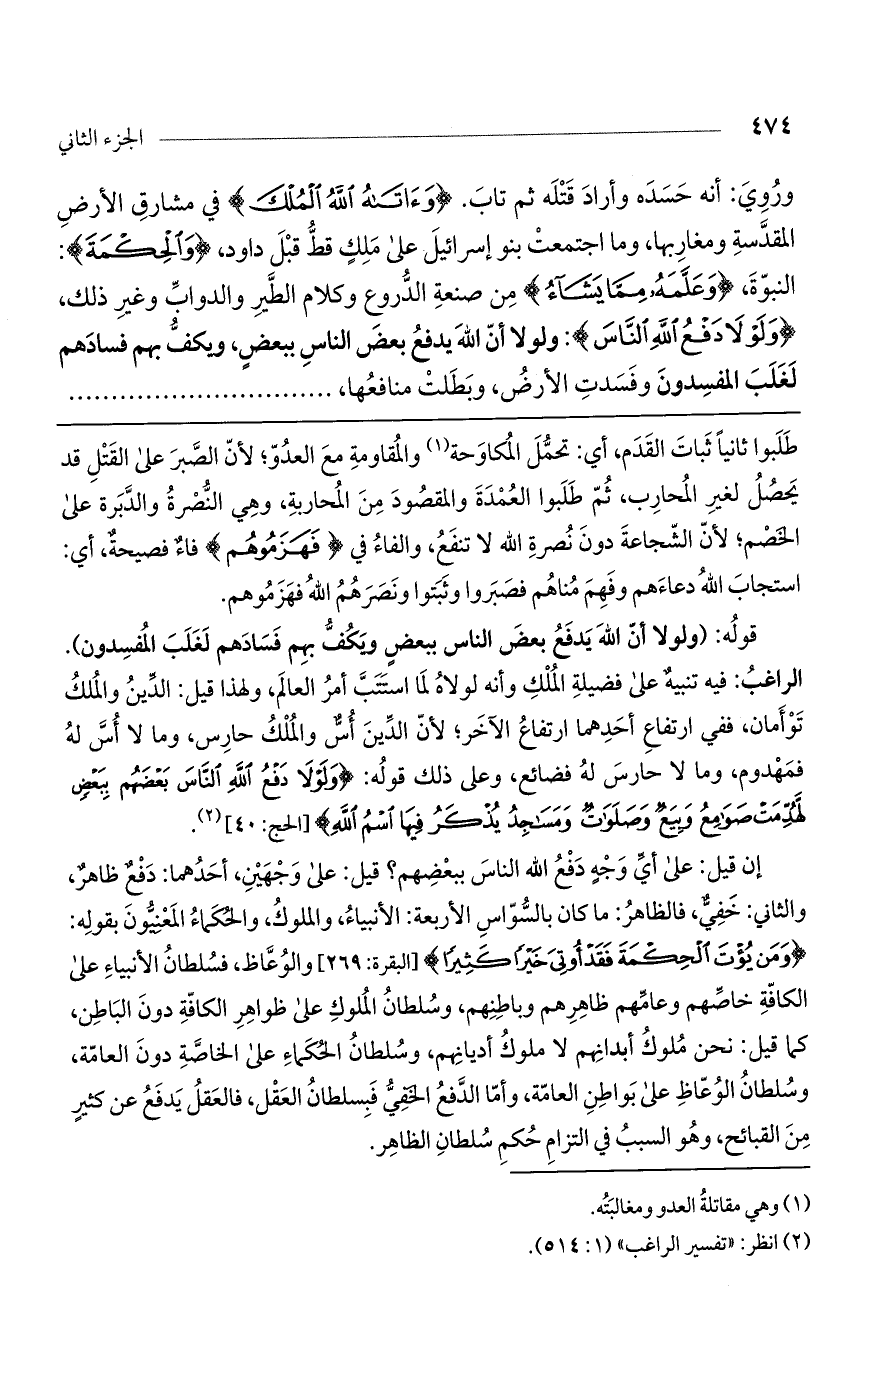 ٤٧٤ الجزء الثاني
ورُوِيَ: أنه حَسَدَه وأرادَ قَتْلَه ثم تابَ. ﴿وَءَاتَىٰهُ ٱللَّهُ ٱلْمُلْكَ﴾ في مشارقِ الأرضِ
المقدَّسةِ ومغاربِها، وما اجتمعتْ بنو إسرائيلَ علىٰ مَلِكٍ قطُّ قبْلَ داود، ﴿وَٱلْحِكْمَةَ﴾:
النبوّةَ، ﴿وَعَلَّمَهُۥ مِمَّا يَشَآءُ﴾ مِن صنعةِ الدُّروع وكلام الطَّيرِ والدوابِّ وغيرِ ذلك،
﴿وَلَوْلَا دَفْعُ ٱللَّهِ ٱلنَّاسَ﴾: ولولا أنّ اللهَ يدفعُ بعضَ الناسِ ببعضٍ، ويكفُّ بهم فسادَهم
لَغَلَبَ المفسِدونَ وفَسَدتِ الأرضُ، وبَطَلتْ منافعُها، ...............................
طَلَبوا ثانياً ثَباتَ القَدَم، أي: تحمُّلَ المُكاوَحة(١) والمُقاومةِ معَ العدُوّ؛ لأنّ الصَّبرَ علىٰ القَتْلِ قد
يَحصُلُ لغيرِ المُحارِب، ثُمّ طَلَبوا العُمْدَةَ والمقصُودَ مِنَ المُحاربةِ، وهي النُّصْرةُ والدَّبَرة علىٰ
الخَصْم؛ لأنّ الشّجاعةَ دونَ نُصرةِ الله لا تنفَعُ، والفاءُ في ﴿فَهَزَمُوهُم﴾ فاءٌ فصيحةٌ، أي:
استجابَ اللهُ دعاءَهم وفَهِمَ مُناهُم فصَبَروا وثَبَتوا ونَصَرَهُمُ اللهُ فهَزَمُوهم.
قولُه: (ولولا أنّ اللهَ يَدفَعُ بعضَ الناس ببعضٍ ويَكُفُّ بهِم فَسَادَهم لَغَلَبَ المُفسِدون).
الراغبُ: فيه تنبيهٌ علىٰ فضيلةِ المُلْكِ وأنه لولاهُ لَمَا استَتَبَّ أمرُ العالَم، ولهذا قيل: الدِّينُ والمُلكُ
تَوْأمان، ففي ارتفاعِ أحَدِهما ارتفاعُ الآخَر؛ لأنّ الدِّينَ أُسٌّ والمُلْكُ حارِس، وما لا أُسَّ لهُ
فمَهْدوم، وما لا حارسَ لهُ فضائع، وعلى ذلك قولُه: ﴿وَلَوْلَا دَفْعُ ٱللَّهِ ٱلنَّاسَ بَعْضَهُم بِبَعْضٍ
لَّهُدِّمَتْ صَوَٰمِعُ وَبِيَعٌ وَصَلَوَٰتٌ وَمَسَٰجِدُ يُذْكَرُ فِيهَا ٱسْمُ ٱللَّهِ﴾ [الحج: ٤٠](٢).
إن قيل: علىٰ أيِّ وَجْهٍ دَفْعُ الله الناسَ ببعْضِهم؟ قيل: علىٰ وَجْهَيْنِ، أحَدُهما: دَفْعٌ ظاهرٌ،
والثاني: خَفِيٌّ، فالظاهرُ: ما كان بالسُّوّاسِ الأربعة: الأنبياءُ، والملوكُ، والحُكماءُ المَعْنِيُّونَ بقولِه:
﴿وَمَن يُؤْتَ ٱلْحِكْمَةَ فَقَدْ أُوتِىَ خَيْرًا كَثِيرًا﴾ [البقرة: ٢٦٩] والوُعَّاظ، فسُلطانُ الأنبياءِ علىٰ
الكافّةِ خاصِّهم وعامِّهم ظاهرِهم وباطنِهم، وسُلطانُ المُلوكِ علىٰ ظواهرِ الكافّةِ دونَ البَاطِن،
كما قيل: نحن مُلوكُ أبدانِهم لا ملوكُ أديانِهم، وسُلطانُ الحُكَماءِ علىٰ الخاصَّةِ دونَ العامّة،
وسُلطانُ الوُعّاظِ علىٰ بَواطِنِ العامّة، وأمّا الدَّفعُ الخَفِيُّ فبِسلطانُ العَقْل، فالعَقلُ يَدفَعُ عن كثيرٍ
مِنَ القبائح، وهُو السببُ في التزامِ حُكمِ سُلطانِ الظاهِر.
(١) وهي مقاتلةُ العدو ومغالبَتُه.
(٢) انظر: «تفسير الراغب» (١: ٥١٤).